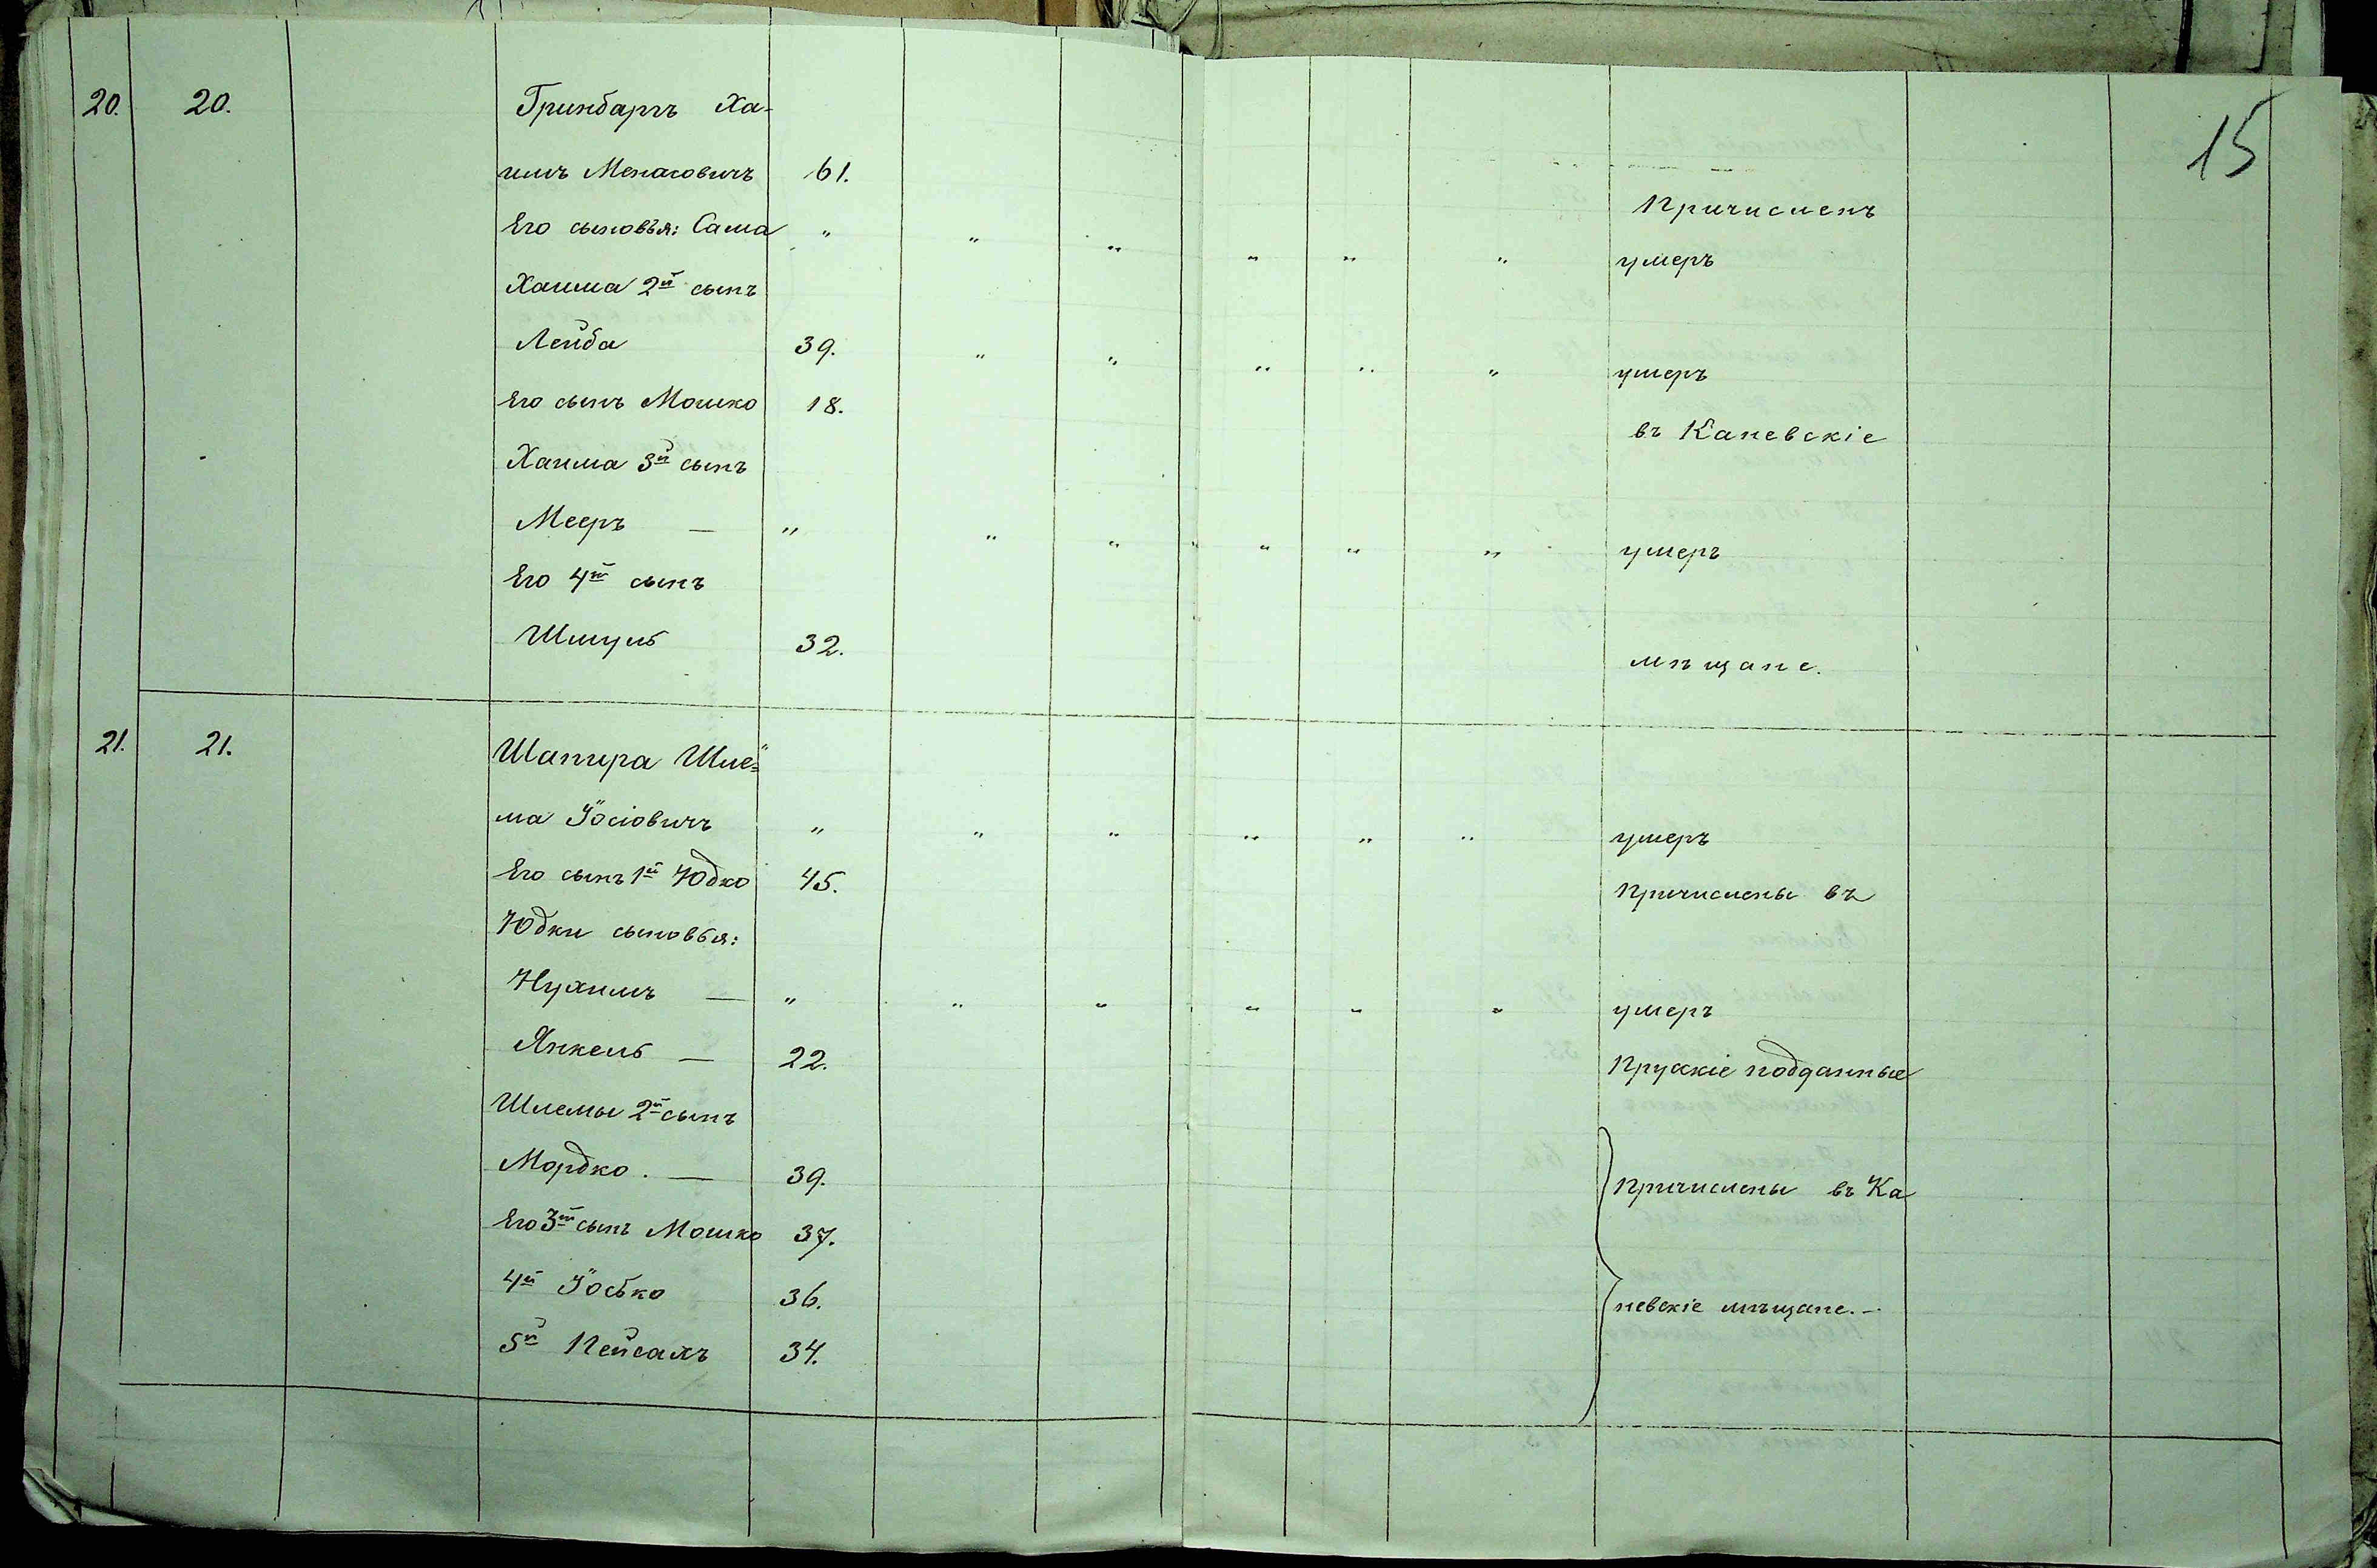 15
20. 20. Гринбаргъ Ха-
имъ Менасовичъ 61. Причисленъ
Его сыновья: Сама " " " " " " умеръ
Хаима 2й сынъ
Лейба 39. " " " " " умеръ
Его сынъ Мошко 18. въ Каневскіе
Хаима 3й сынъ
Мееръ — " " " " " " умеръ
Его 4й сынъ
Шмуль 32. мѣщане.
21. 21. Шапира Шле=
ма Іосіовичъ " " " " " " умеръ
Его сынъ 1й Юдко 45. Причислены въ
Юдки сыновья:
Нухимъ — " " " " " " умеръ
Янкель — 22. Прускіе подданные
Шлемы 2й сынъ
Мордко. — 39. Причислены въ Ка
Его 3й сынъ Мошко 37.
4й Іосько 36. невскіе мѣщане. —
5й Пейсахъ 34.